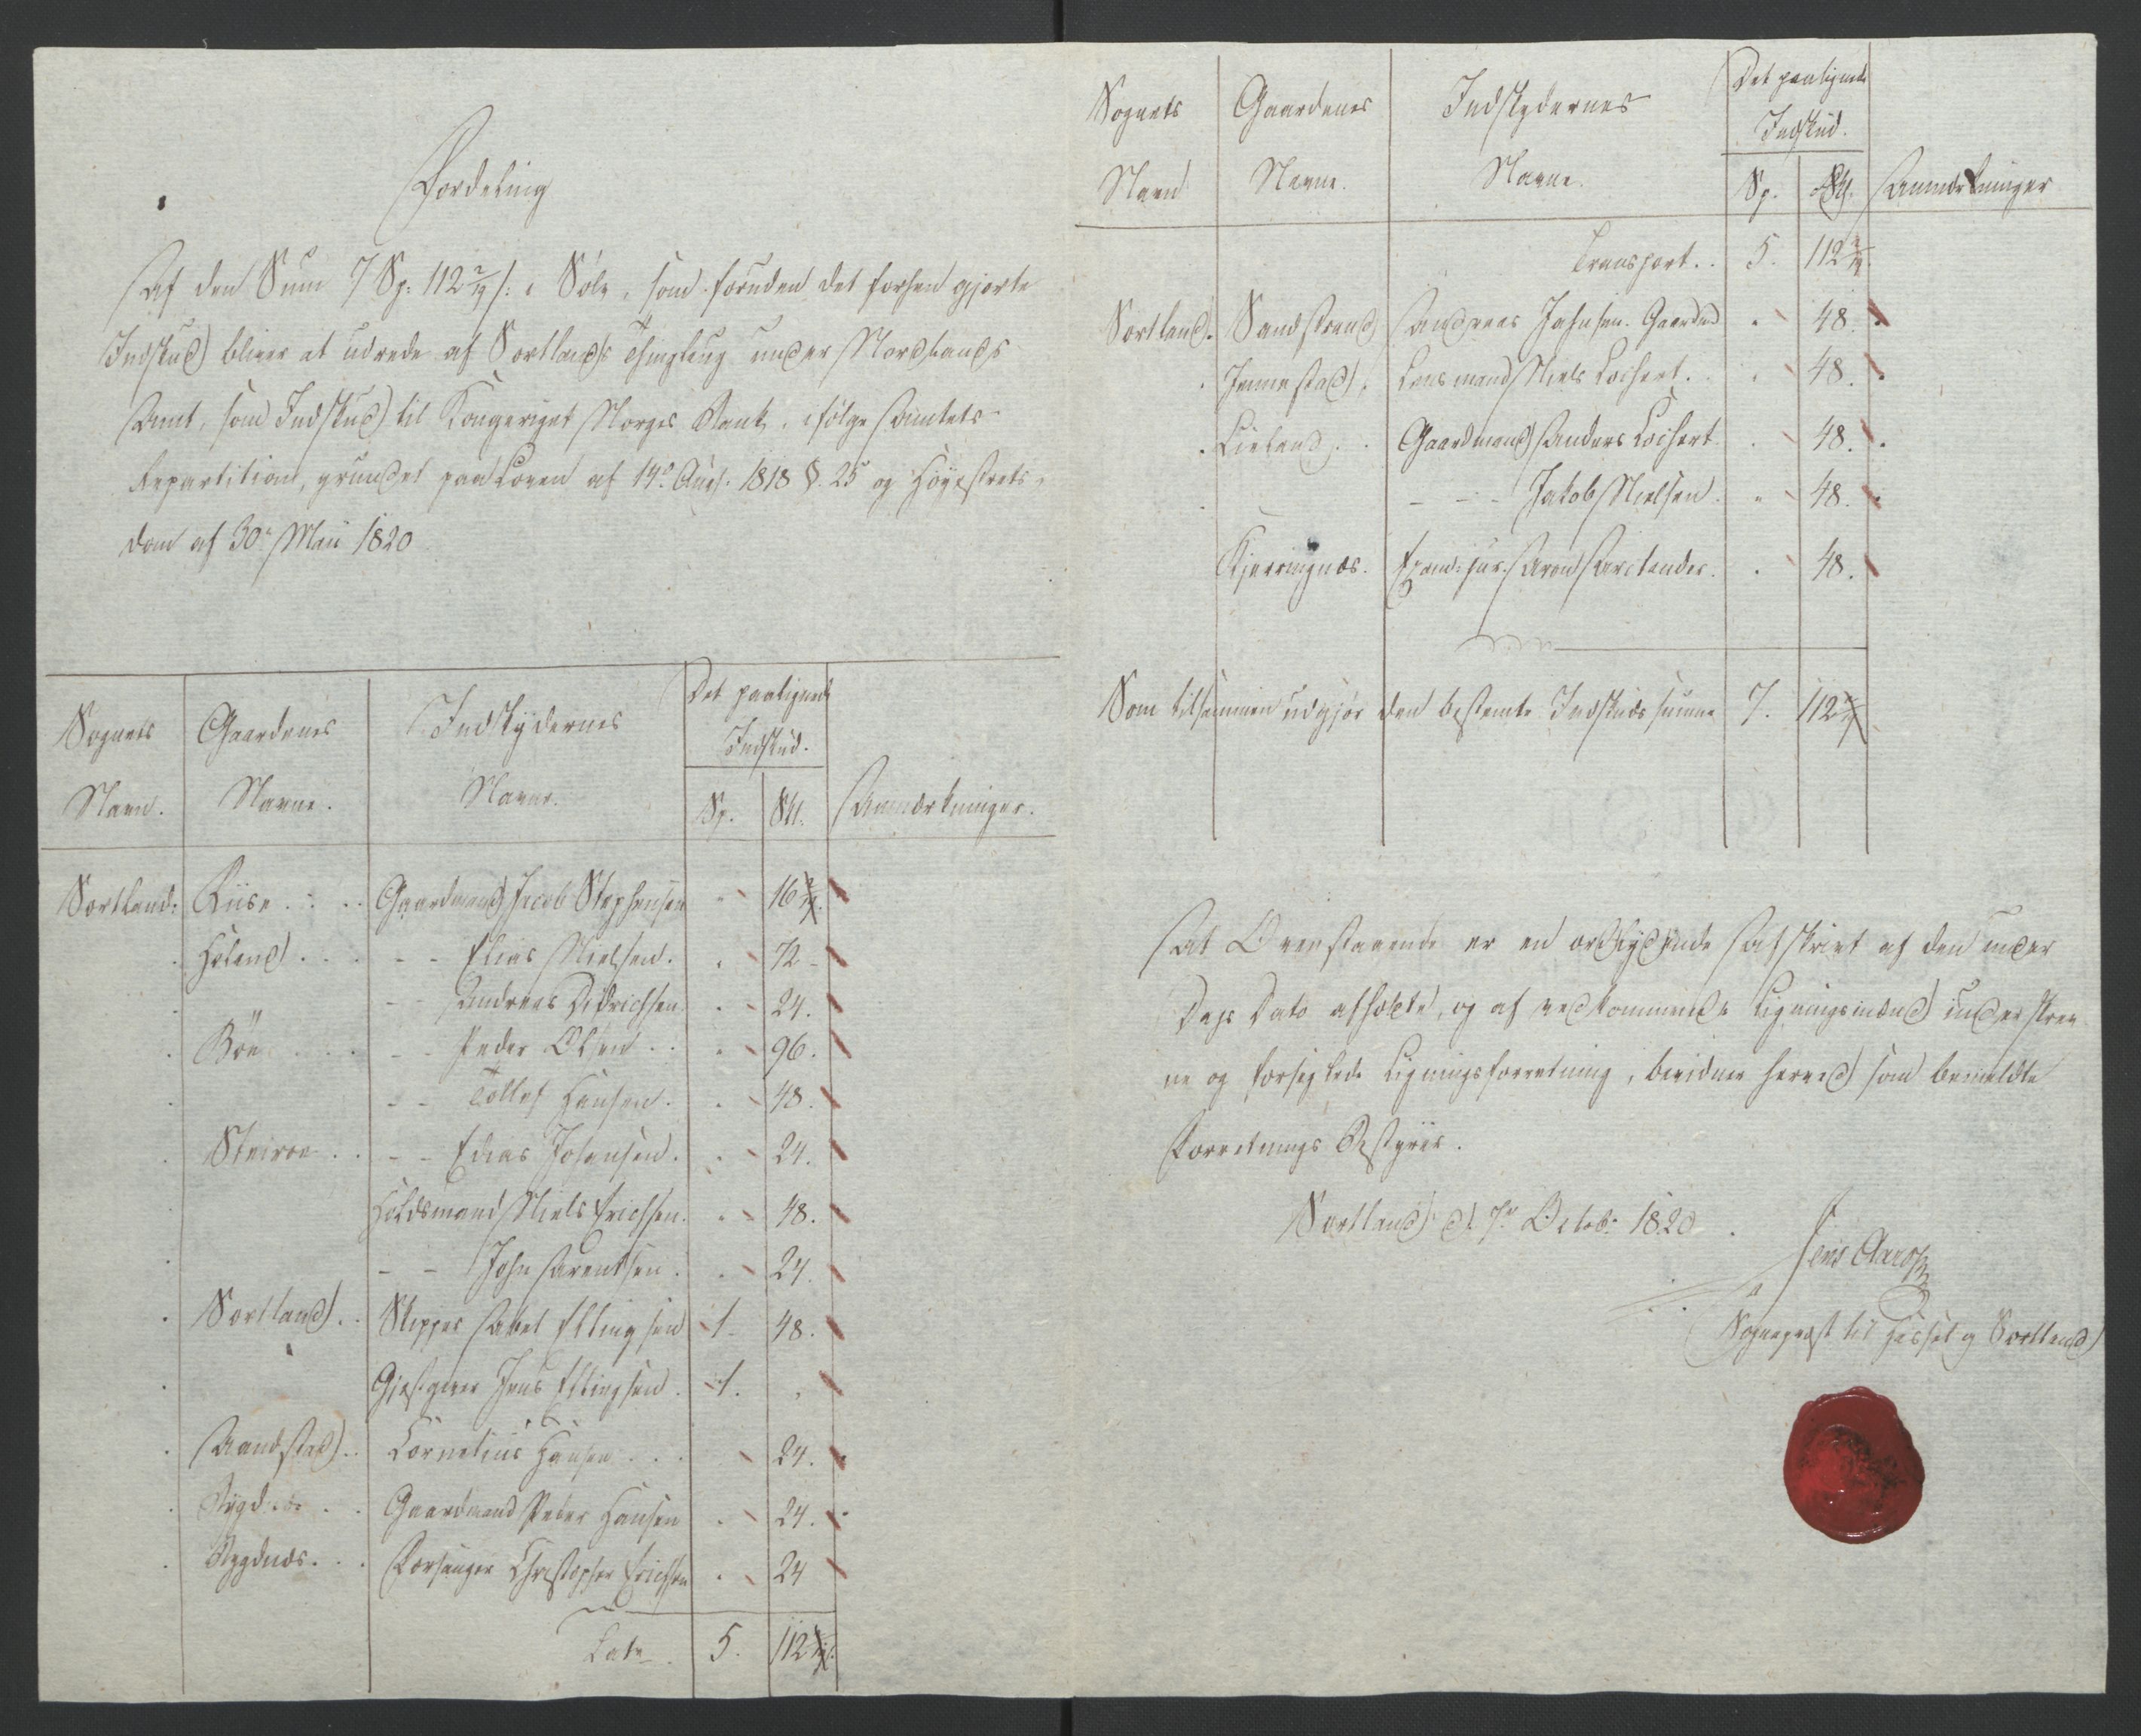 Fordeling
Af den Sum 7 Sp: 112 2/4 s: i Sølv, som foruden det forhen gjorte
Indskud bliver at udrede af Sortlands Thinglaug under Nordlands
Amt, som Indskud til Kongeriget Norges Bank, ifølge Amtets
Repartition, grundet paa Loven af 14d. Aug. 1818 §. 25 og Høyestrets-
dom af 30te Maii 1820
Sognets Gaardenes Indskydernes Det paalignede
Indskud.
Navn. Navne. Navne. Sp. Skl. Anmærkninger.
Sortland: Riise . . . Gaardmand Jacob Stephensen " 16 2/4.
Holand . . . - - Elias Nielsen . " 72 -
- - Andreas Didrichsen " 24.
Böe . . . - - Peder Olsen . . " 96.
- - Tollef Hansen . " 48.
Steiroe . . - - Edias Johansen . " 24.
Huusmand Niels Erichsen . " 48.
- - John Arentsen . " 24.
Sortland . . Skipper Abel Ellingsen 1 - 48.
Gjestgiver Jens Ellingsen . 1. "
Aandstad . . Cornelius Hansen . . . 24.
. . Gaardmand Peder Hansen " 24.
Rygdnæs . . . Forsanger Christopher Erichsen " 24
Late . 5. 112 2/4.
Sognets Gaardenes Indskydernes Det paalignede
Indskud.
Navn Navne. Navne. Sp. Skl. Anmærkninger
Transport . . 5. 112 2/4.
Sortland. Sandstrand Andreas Johnsen. Gaardmd " 48.
Jennestad, Lensmand Niels Lochert . " 48.
Lieland . . Gaardmand Anders Lochert . " 48.
- - - Jakob Nielsen . " 48.
Kjerringnæs. Exam: jur: Arond Arctander. " 48.
Som tilsammen udgjør den bestemte Indskuds summe 7. 112 2/4
At Ovenstaaende er en ordlydende Afskrivt af den under
Dags Dato afholdte, og af vedkommende Ligningsmænd underskrev-
ne og forseglede Ligningsforretning, bevidner herved som bemeldte
Forretnings Bestyrer.
Sortland d. 7de Octob: 1820.
Jens
Sognepræst til Hassel og Sortland